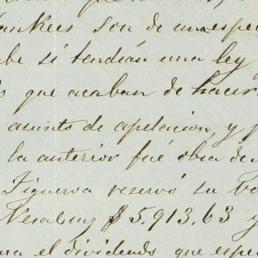 Yankees son de una espe
be si tendrán una ley
s que acaban de hacer
asunto de apelacion, y
la anterior fué obra de
Figueroa reservó su vo
$5,913.63 y
na el dividendo que espe